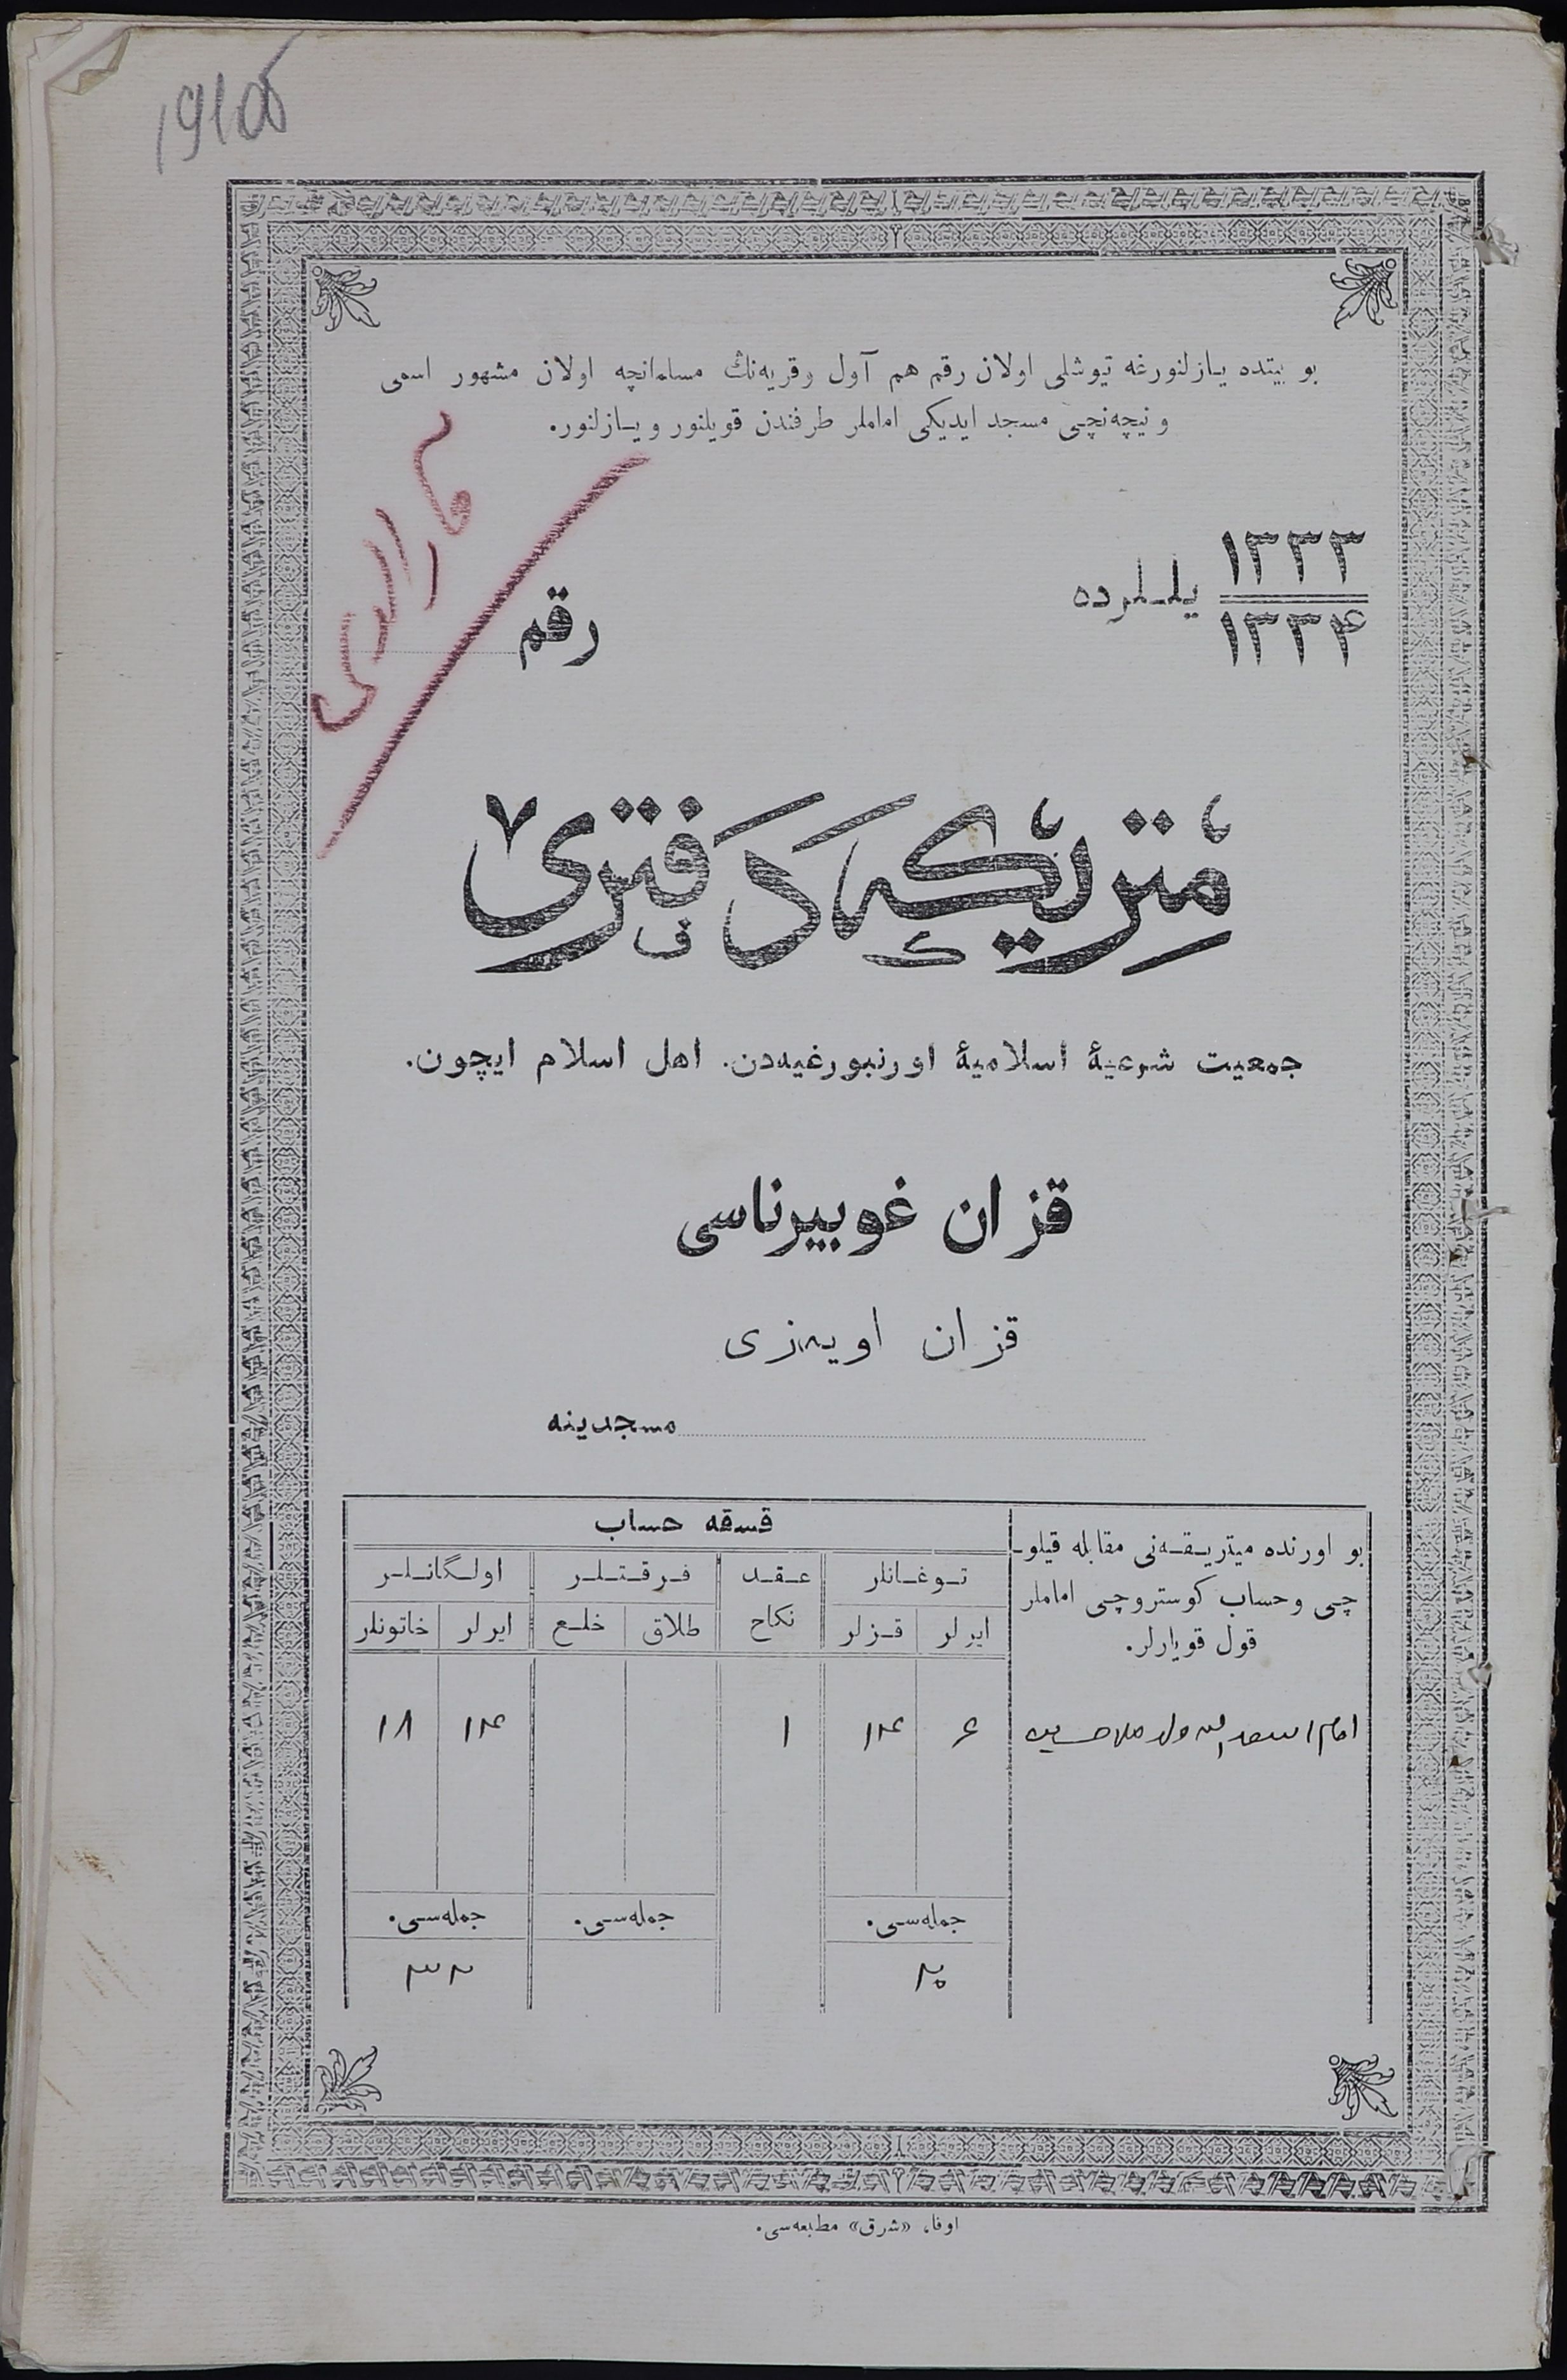 1915
بو بیتده یازلنورغه تیوشلی اولان رقم هم آول وقریه‌نڭ مسلمانچه اولان مشهور اسمی
ونیچه‌نچی مسجد ایدیکی اماملر طرفندن قویلنور ویازلنور.
۱۳۳۳
۱۳۳۴
یللرده
رقم
متریكه دفتری
جمعیت شرعیۀ اسلامیۀ اورنبورغیه‌دن. اهل اسلام ایچون.
قزان غوبیرناسی
قزان اویه‌زی
مسجدینه
بو اورنده میتریقه‌نی مقابله قیلو-
چی وحساب کوستروچی اماملر
قول قویارلر.
قسقه حساب
توغانلر
عقد
فرقتلر
اولگانلر
ایرلر
قزلر
نکاح
طلاق
خلع
ایرلر
خاتونلر
امام
۶
۱۴
۱
۱۴
۱۸
جمله‌سی.
جمله‌سی.
جمله‌سی.
۲۰
۳۲
اوفا، «شرق» مطبعه‌سی.